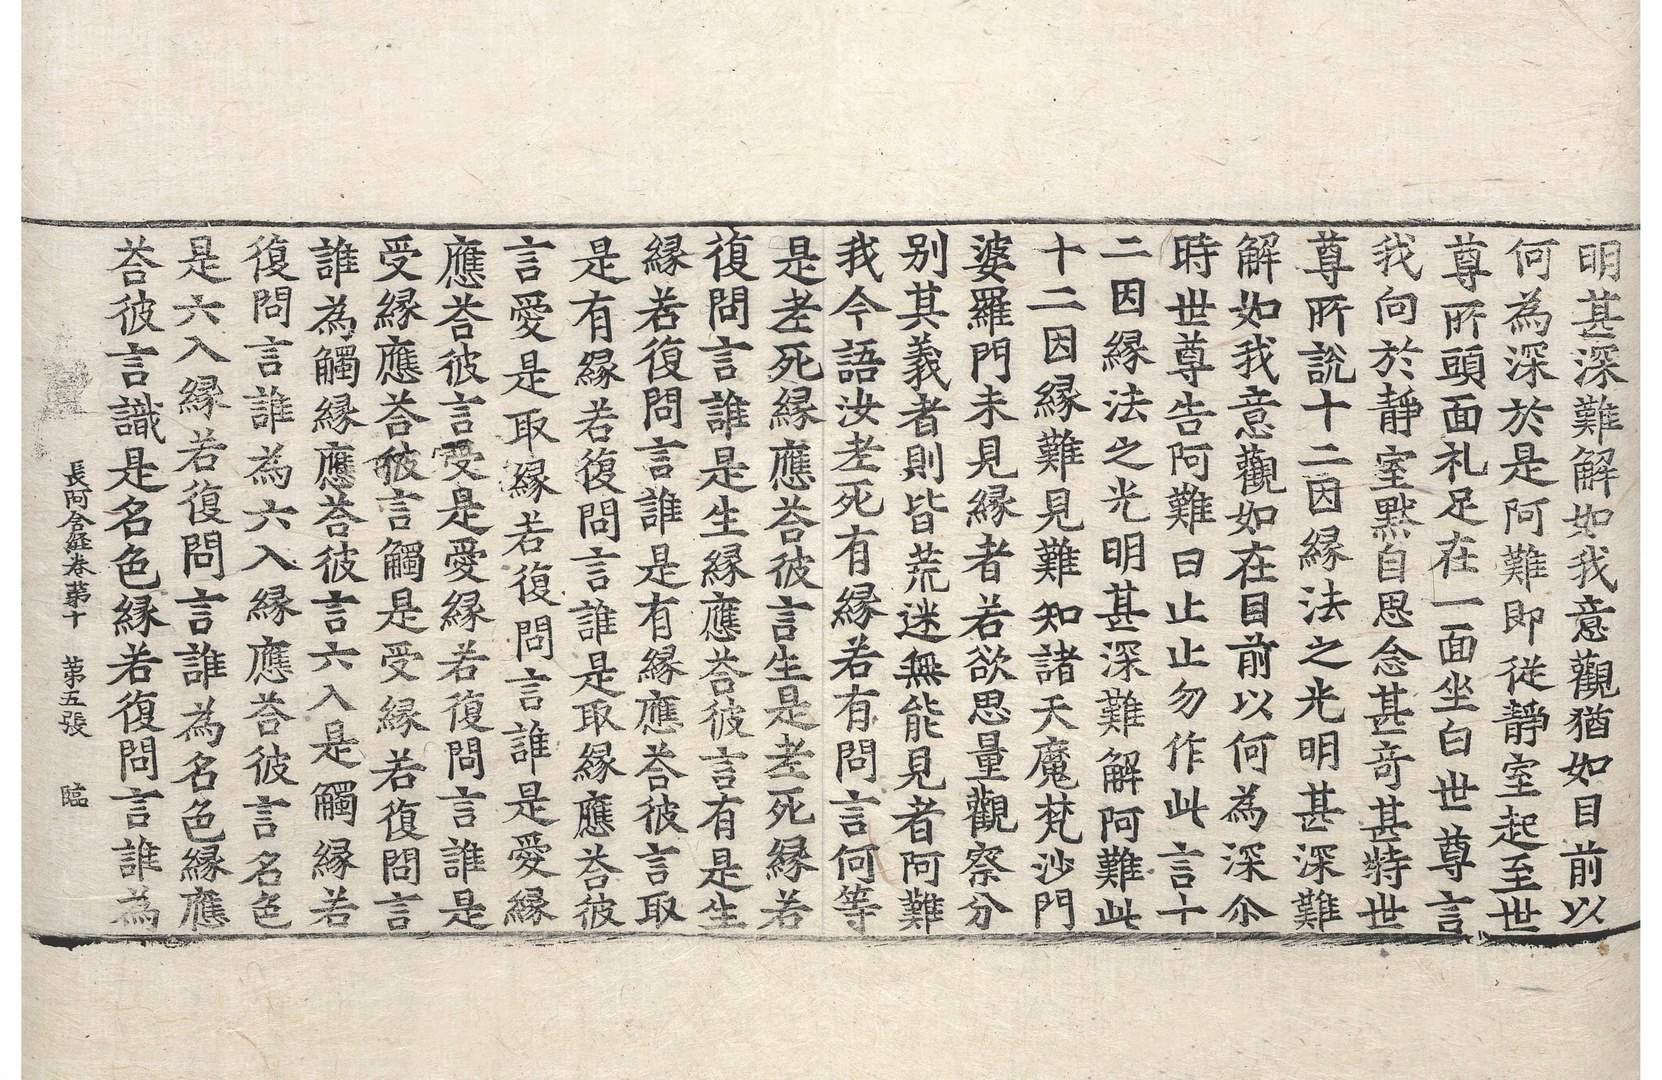 明甚深難解如我意觀猶如目前以
何為深於是阿難即從靜室起至世
尊所頭面礼足在一面坐白世尊言
我向於靜室默自思念甚奇甚特世
尊所說十二因緣法之光明甚深難
解如我意觀如在目前以何為深尒
時世尊告阿難曰止止勿作此言十
二因緣法之光明甚深難解阿難此
十二因緣難見難知諸天魔梵沙門
婆羅門未見緣者若欲思量觀察分
別其義者則皆荒迷無能見者阿難
我今語汝老死有緣若有問言何等
是老死緣應荅彼言生是老死緣若
復問言誰是生緣應荅彼言有是生
緣若復問言誰是有緣應荅彼言取
是有緣若復問言誰是取緣應荅彼
言愛是取緣若復問言誰是愛緣
應荅彼言受是愛緣若復問言誰是
受緣應荅彼言觸是受緣若復問言
誰為觸緣應荅彼言六入是觸緣若
復問言誰為六入緣應荅彼言名色
是六入緣若復問言誰為名色緣應
荅彼言識是名色緣若復問言誰為
長阿含經卷第十 第五張 臨